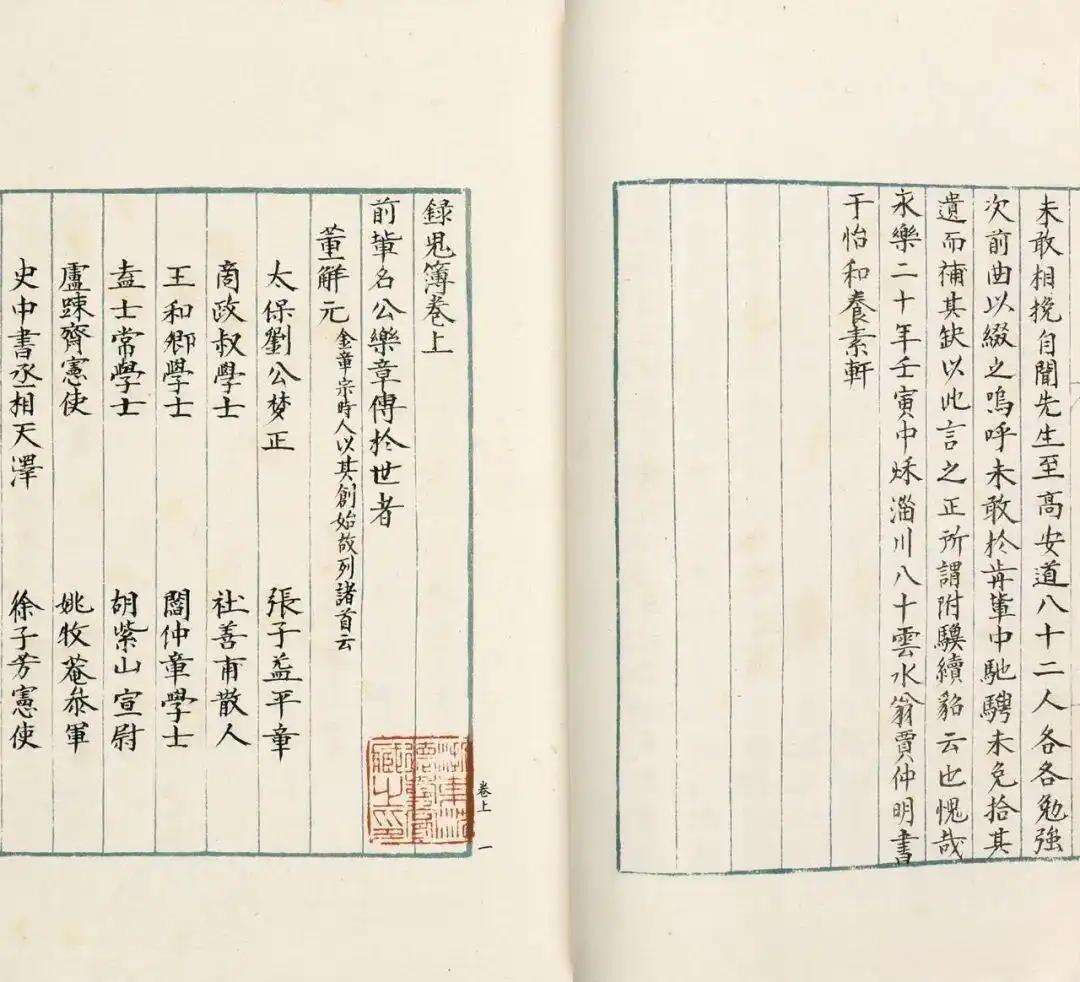 未敢相挽自關先生至高安道八十二人各各勉強
次前曲以綴之嗚呼未敢於前輩中馳騁未免拾其
遺而補其缺以此言之正所謂附驥續貂云也愧哉
永樂二十年壬寅中秌淄川八十雲水翁賈仲明書
于怡和養素軒
録鬼簿卷上
前輩名公樂章傳於世者
董解元 金章宗時人以其創始故列諸首云
太保劉公夢正 張子益平章
商政叔學士 社善甫散人
王和卿學士 閻仲章學士
盍士常學士 胡紫山宣尉
盧踈齋憲使 姚牧菴叅軍
史中書丞相天澤 徐子芳憲使
卷上 一